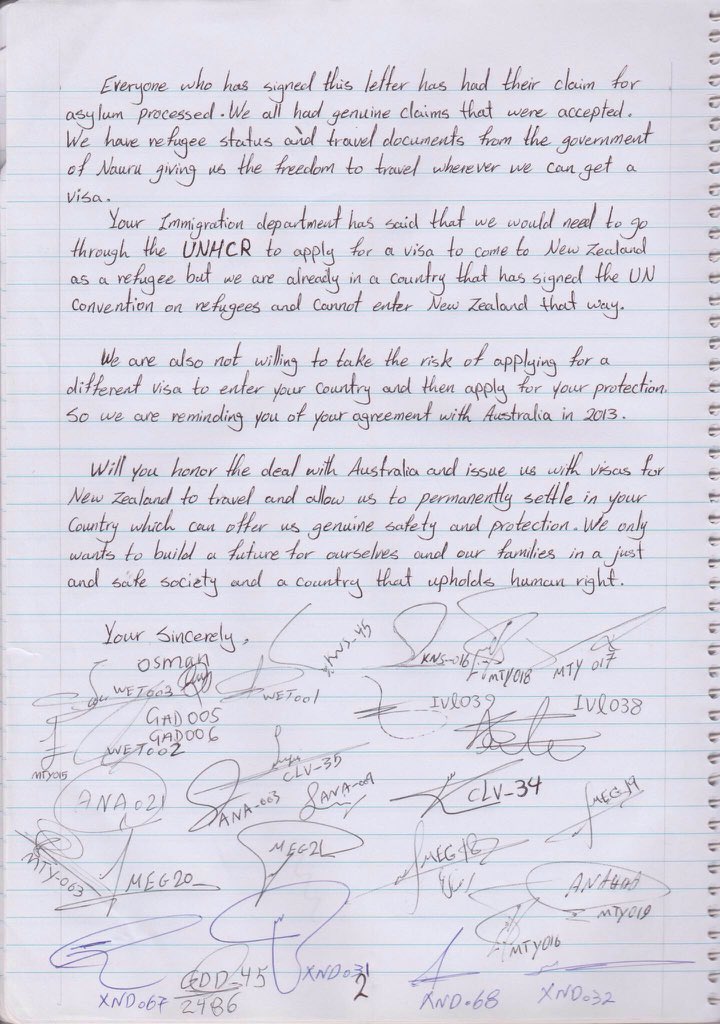 Everyone who has signed this letter has had their claim for
asylum processed. We all had genuine claims that were accepted.
We have refugee status and travel documents from the government
of Nauru giving us the freedom to travel wherever we can get a
visa.
Your Immigration department has said that we would need to go
through the UNHCR to apply for a visa to come to New Zealand
as a refugee but we are already in a country that has signed the UN
Convention on refugees and cannot enter New Zealand that way.
We are also not willing to take the risk of applying for a
different visa to enter your country and then apply for your protection.
So we are reminding you of your agreement with Australia in 2013.
Will you honor the deal with Australia and issue us with visas for
New Zealand to travel and allow us to permanently settle in your
Country which can offer us genuine safety and protection. We only
wants to build a future for ourselves and our families in a just
and safe society and a country that upholds human right.
Your Sincerely,
osman
KNS-45
KNS-016
MTY018
MTY 017
WET003
WET001
IVL039
IVL038
GAD005
GAD006
WET002
MTY015
CLV-35
ANA021
ANA-003
CLV-34
MEG-19
MTY-063
MEG20
MEG21
MTY019
MTY016
XND067
GDD-45
2486
XND031
XND-68
XND-032
2